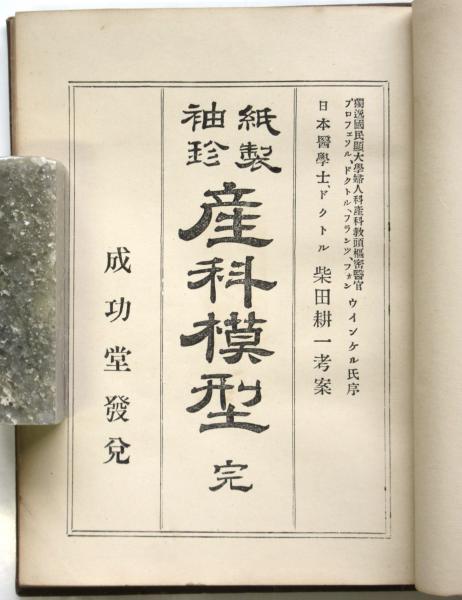 獨逸國民顯大學婦人科產科敎頭樞密醫官
プロフエツソル、ドクトル、フランツ、フオン
ウインケル氏序
日本醫學士、ドクトル 柴田耕一考案
紙製
袖珍
産科模型 完
成功堂發兌